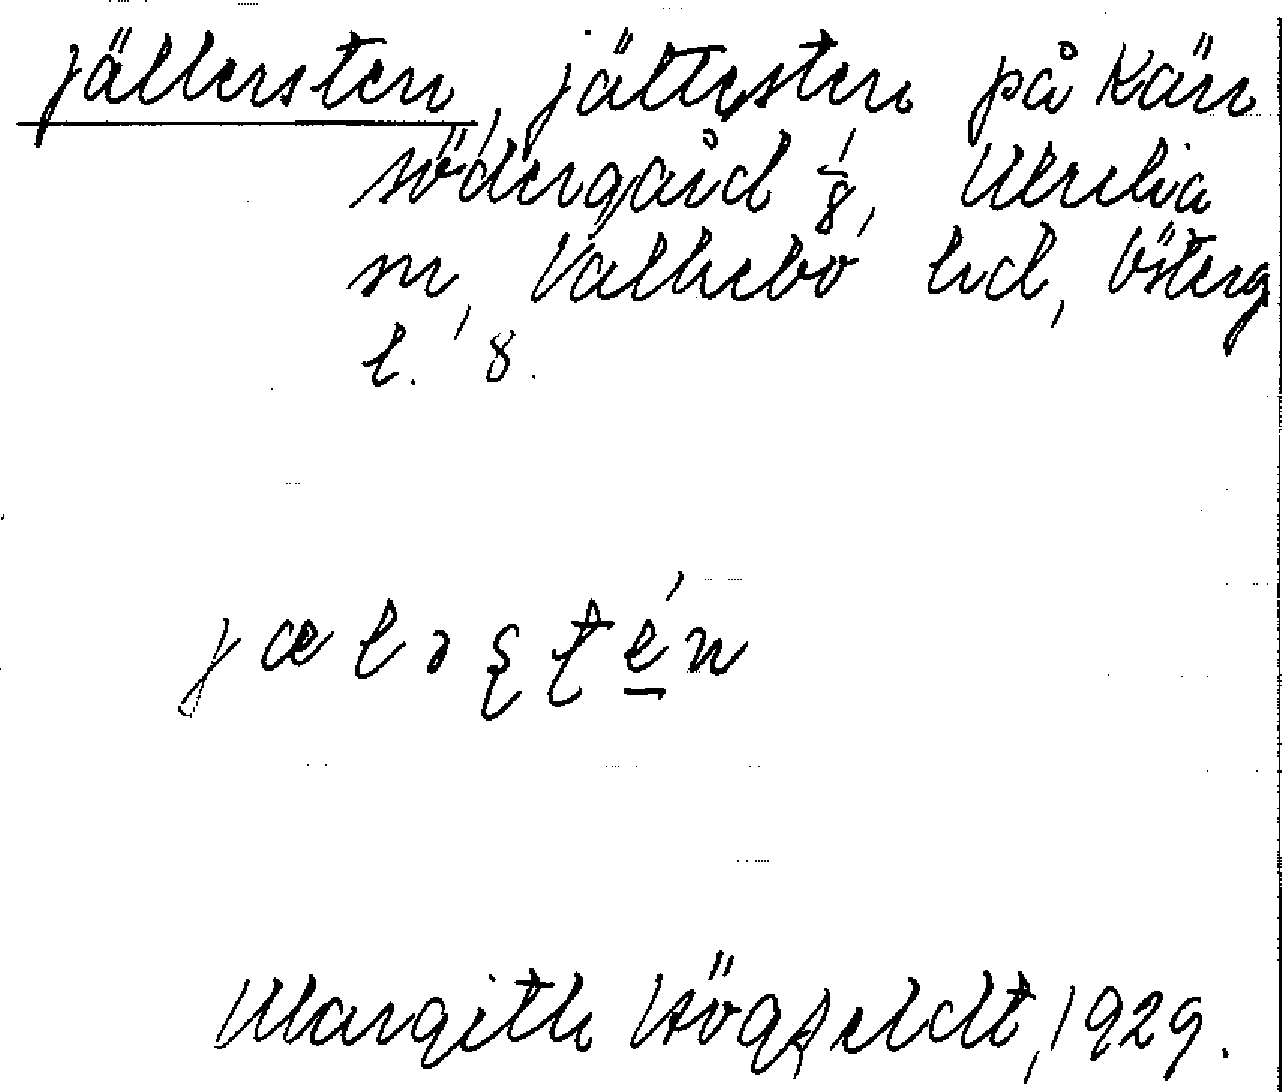 jällersten, jättesten på Kärr
södergård 1/8, Ukrebia
sn, Valkebo hd, Österg
l. 8.
jæləʂʈén
Margith Högfeldt, 1929.